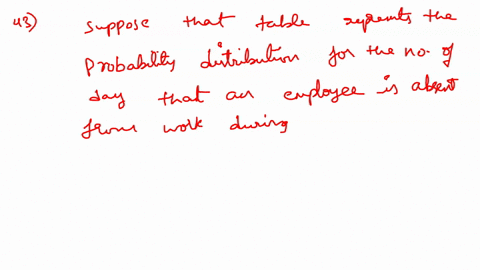 43) Suppose that table represents the
Probability distribution for the no. of
day that an employee is absent
from work during